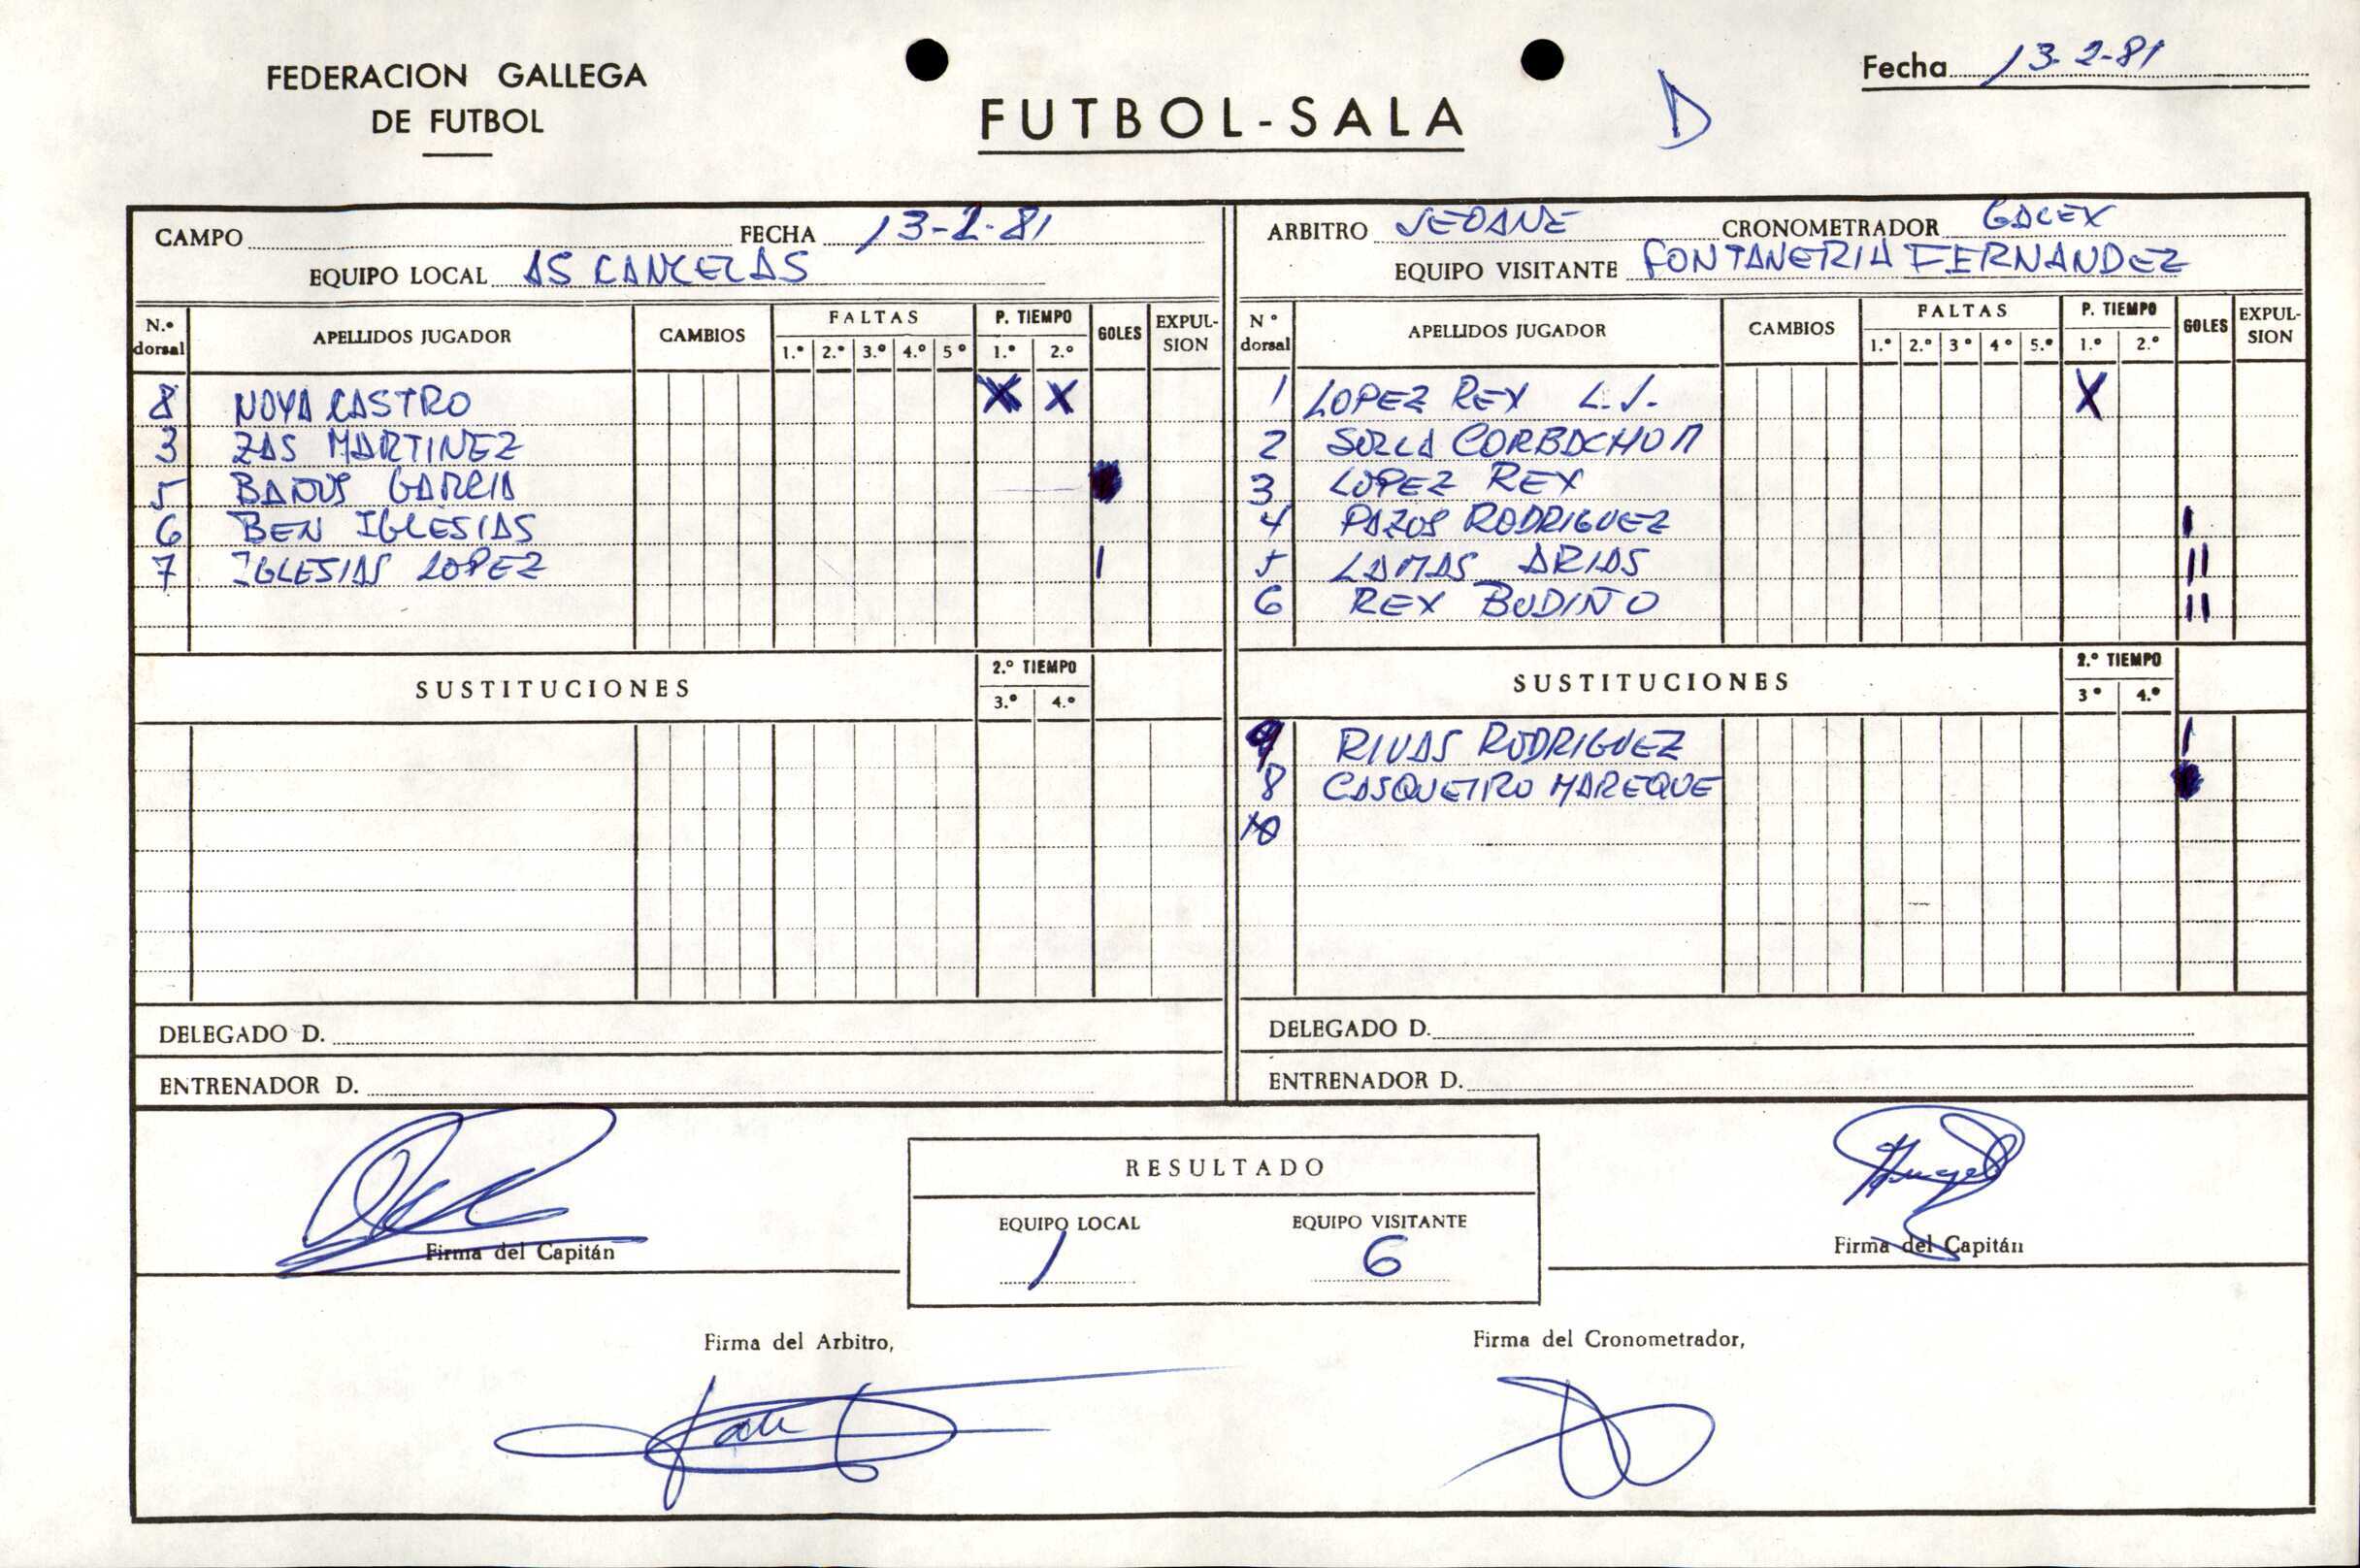 FEDERACION GALLEGA
DE FUTBOL
FUTBOL-SALA
D
Fecha 13-2-81
CAMPO FECHA 13-2-81
EQUIPO LOCAL AS CANCELAS
N.º dorsal APELLIDOS JUGADOR CAMBIOS FALTAS 1.º 2.º 3.º 4.º 5º P. TIEMPO 1.º 2.º GOLES EXPULSION
8 NOYA CASTRO X X
3 ZAS MARTINEZ
5 GARCIA
6 BEN IGLESIAS
7 IGLESIAS LOPEZ I
SUSTITUCIONES 2.º TIEMPO 3.º 4.º
DELEGADO D.
ENTRENADOR D.
ARBITRO SEOANE CRONOMETRADOR GALEX
EQUIPO VISITANTE FONTANERIA FERNANDEZ
Nº dorsal APELLIDOS JUGADOR CAMBIOS FALTAS 1.º 2.º 3º 4º 5.º P. TIEMPO 1.º 2.º GOLES EXPULSION
1 LOPEZ REY L.J. X
2 CORBACHO M
3 LOPEZ REY
4 PAZOS RODRIGUEZ I
5 LAMAS ARIAS II
6 REY BUDIÑO II
SUSTITUCIONES 2.º TIEMPO 3º 4.º
9 RIVAS RODRIGUEZ I
8 CASQUEIRO MAREQUE
10
DELEGADO D.
ENTRENADOR D.
Firma del Capitán
RESULTADO
EQUIPO LOCAL EQUIPO VISITANTE
1 6
Firma del Capitán
Firma del Arbitro,
Firma del Cronometrador,